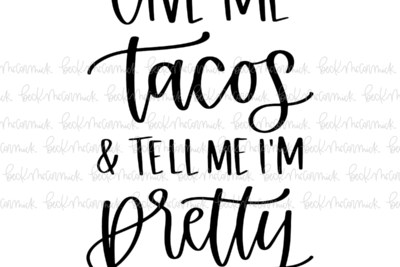 GIVE ME
tacos
& TELL ME I'M
pretty